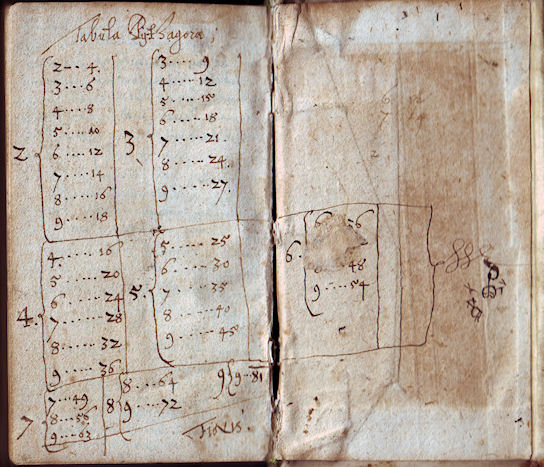 Tabula Pythagoræ
2
2 ... 4.
3 ... 6
4 ... 8
5 .... 10
6 .... 12
7 .... 14
8 .... 16
9 .... 18
3
3 .... 9
4 .... 12
5 .... 15
6 .... 18
7 .... 21
8 .... 24.
9 .... 27.
4.
4. .... 16
5 .... 20
6 .... 24
7 .... 28
8 .... 32
9 .... 36
5
5 .... 25
6 .... 30
7 .... 35
8 .... 40
9 .... 45
6.
6 36
48
9 .... 54
7
7 ... 49
8 ... 56
9 ... 63
8
8 ... 64
9 .... 72
9
9 ... 81
Finis.